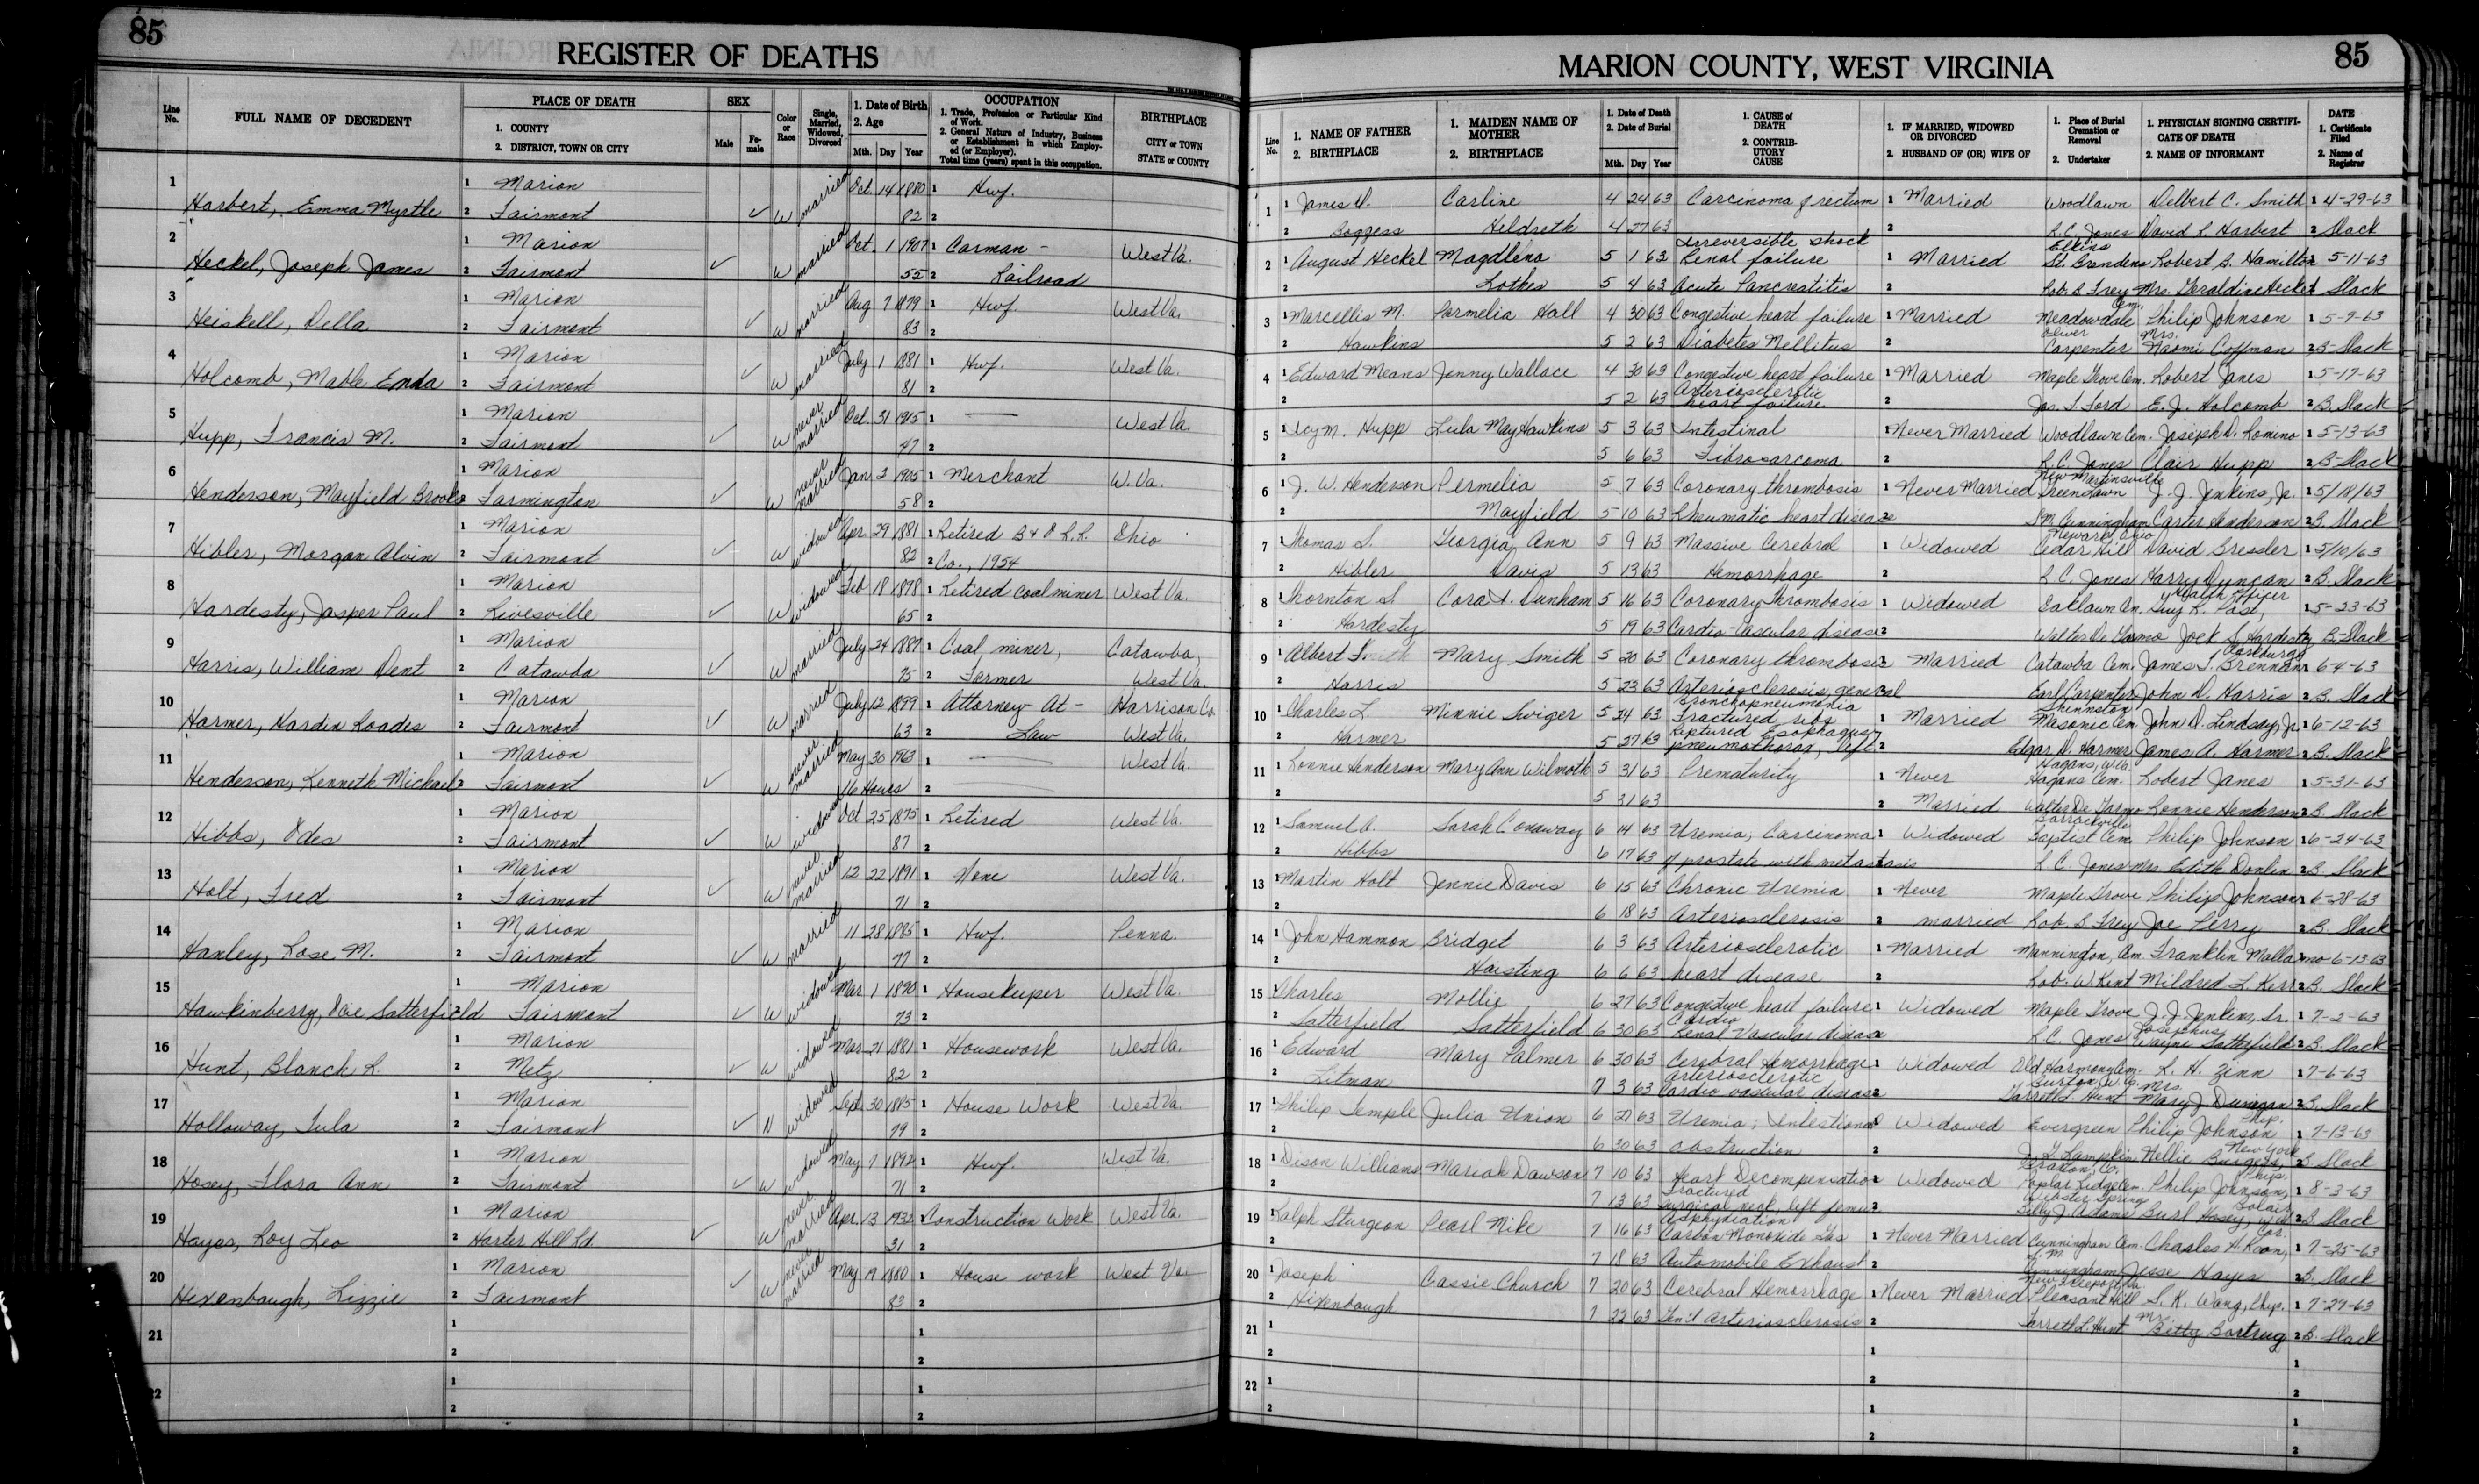 85
REGISTER OF DEATHS
Line No. FULL NAME OF DECEDENT PLACE OF DEATH 1. COUNTY 2. DISTRICT, TOWN OR CITY SEX Male Female Color or Race Single, Married, Widowed, Divorced 1. Date of Birth 2. Age Mth. Day Year OCCUPATION 1. Trade, Profession or Particular Kind of Work. 2. General Nature of Industry, Business or Establishment in which Employed (or Employer). Total time (years) spent in this occupation. BIRTHPLACE CITY or TOWN STATE or COUNTY
1 1 Marion married Oct. 14 1880 1 Hwf.
Harbert, Emma Myrtle 2 Fairmont ✓ W 82 2
2 1 Marion married Oct. 1 1907 1 Carman - West Va.
Heckel, Joseph James 2 Fairmont ✓ W 55 2 Railroad
3 1 Marion married Aug 7 1879 1 Hwf. West Va.
Heiskell, Della 2 Fairmont ✓ W 83 2
4 1 Marion married July 1 1881 1 Hwf. West Va.
Holcomb, Mable Enda 2 Fairmont ✓ W 81 2
5 1 Marion never married Oct. 31 1915 1 — West Va.
Hupp, Francis M. 2 Fairmont ✓ W 47 2
6 1 Marion never married Jan 3 1905 1 Merchant W. Va.
Henderson, Mayfield Brooks 2 Farmington ✓ W 58 2
7 1 Marion widowed Apr. 29 1881 1 Retired B & O R.R. Ohio
Hibler, Morgan Alvin 2 Fairmont ✓ W 82 2 Co., 1954
8 1 Marion widowed Feb 18 1898 1 Retired coal miner West Va.
Hardesty, Jasper Paul 2 Rivesville ✓ W 65 2
9 1 Marion married July 24 1887 1 Coal miner, Catawba,
Harris, William Dent 2 Catawba ✓ W 75 2 Farmer West Va.
10 1 Marion married July 12 1899 1 Attorney - At - Harrison Co
Harmer, Hardin Roades 2 Fairmont ✓ W 63 2 Law West Va.
11 1 Marion never married May 30 1963 1 — West Va.
Henderson, Kenneth Michael 2 Fairmont ✓ W 16 Hours 2
12 1 Marion widowed Oct 25 1875 1 Retired West Va.
Hibbs, Odes 2 Fairmont ✓ W 87 2
13 1 Marion never married 12 22 1891 1 None West Va.
Holt, Fred 2 Fairmont ✓ W 71 2
14 1 Marion married 11 28 1885 1 Hwf. Penna.
Hanley, Rose M. 2 Fairmont ✓ W 77 2
15 1 Marion widowed Mar 1 1890 1 Housekeeper West Va.
Hawkinberry, Ocie Satterfield 2 Fairmont ✓ W 73 2
16 1 Marion widowed Mar 21 1881 1 Housework West Va.
Hunt, Blanch R. 2 Metz ✓ W 82 2
17 1 Marion widowed Sept. 30 1 House Work West Va.
Holloway, Lula 2 Fairmont ✓ N 79 2
18 1 Marion widowed May 7 1892 1 Hwf. West Va.
Hosey, Flora Ann 2 Fairmont ✓ W 71 2
19 1 Marion never married Apr. 13 1932 1 Construction Work West Va.
Hayes, Roy Leo 2 Harter Hill Rd. ✓ W 31 2
20 1 Marion never married May 19 1880 1 House work West Va.
Hixenbaugh, Lizzie 2 Fairmont ✓ W 83 2
21 1 1
2 2
22 1 1
2 2
85
MARION COUNTY, WEST VIRGINIA
Line No. 1. NAME OF FATHER 2. BIRTHPLACE 1. MAIDEN NAME OF MOTHER 2. BIRTHPLACE 1. Date of Death 2. Date of Burial Mth. Day Year 1. CAUSE of DEATH 2. CONTRIBUTORY CAUSE 1. IF MARRIED, WIDOWED OR DIVORCED 2. HUSBAND OF (OR) WIFE OF 1. Place of Burial Cremation or Removal 2. Undertaker 1. PHYSICIAN SIGNING CERTIFICATE OF DEATH 2. NAME OF INFORMANT DATE 1. Certificate Filed 2. Name of Registrar
1 1 James D. Carline 4 24 63 Carcinoma of rectum 1 Married Woodlawn Delbert C. Smith 1 4-29-63
2 Boggess Hildreth 4 27 63 2 R.C. Jones David L. Harbert 2 Slack
2 1 August Heckel Magdlena 5 1 63 Irreversible shock Renal failure 1 Married Elkins St. Brendens Robert B. Hamilton 5-11-63
2 Lothes 5 4 63 Acute Pancreatitis 2 Rob. B. Frey Mrs. Geraldine Heckel Slack
3 1 Marcellis M. Parmelia Hall 4 30 63 Congestive heart failure 1 Married Meadowdale Cem. Philip Johnson 1 5-9-63
2 Hawkins 5 2 63 Diabetes Mellitus 2 Oliver Carpenter Mrs. Naomi Coffman 2 B. Slack
4 1 Edward Means Jenny Wallace 4 30 63 Congestive heart failure 1 Married Maple Grove Cem. Robert Janes 1 5-17-63
2 5 2 63 Arteriosclerotic heart failure 2 Jos. T. Ford E. J. Holcomb 2 B. Slack
5 1 Icy M. Hupp Lula May Hawkins 5 3 63 Intestinal 1 Never Married Woodlawn Cem. Joseph D. Romino 1 5-13-63
2 5 6 63 Fibrosarcoma 2 R. C. Jones Clair Hupp 2 B. Slack
6 1 J. W. Henderson Permelia 5 7 63 Coronary thrombosis 1 Never Married New Martinsville Greenlawn J. J. Jenkins, Jr. 1 5/18/63
2 Mayfield 5 10 63 Rheumatic heart disease 2 J M Cunningham Carter Henderson 2 B. Slack
7 1 Thomas S. Georgia Ann 5 9 63 Massive Cerebral 1 Widowed Newark, Ohio Cedar Hill David Bressler 1 5/10/63
2 Hibler Davis 5 13 63 Hemorrhage 2 R C. Jones Harry Duncan 2 B. Slack
8 1 Thornton S. Cora I. Dunham 5 16 63 Coronary Thrombosis 1 Widowed Oaklawn Cem. Health Officer Guy R. Post, 1 5-23-63
2 Hardesty 5 19 63 Cardio-Vascular disease 2 Walter De Garmo Jack S. Hardesty 2 B. Slack
9 1 Albert S. Mary Smith 5 20 63 Coronary thrombosis 1 Married Catawba Cem. Clarksburg James T. Brennan 1 6-4-63
2 Harris 5 23 63 Arteriosclerosis, general 2 Earl Carpenter John D. Harris 2 B. Slack
10 1 Charles L. Minnie Swiger 5 24 63 Bronchopneumonia Fractured ribs 1 Married Shinnston Masonic Cem. John D. Lindsay, Jr. 1 6-12-63
2 Harmer 5 27 63 Ruptured Esophagus pneumothorax, left 2 Edgar D. Harmer James A. Harmer 2 B. Slack
11 1 Ronnie Henderson Mary Ann Wilmoth 5 31 63 Prematurity 1 Never Hagans, W.Va. Hagans Cem. Robert Janes 1 5-31-63
2 5 31 63 2 Married Walter De Garmo Ronnie Henderson 2 B. Slack
12 1 Samuel A. Sarah Conaway 6 14 63 Uremia, Carcinoma 1 Widowed Barrackville Baptist Cem. Philip Johnson 1 6-24-63
2 Hibbs 6 17 63 of prostate with metastasis R. C. Jones Mrs. Edith Donlin 2 B. Slack
13 1 Martin Holt Jennie Davis 6 15 63 Chronic Uremia 1 Never Maple Grove Philip Johnson 1 6-28-63
2 6 18 63 Arteriosclerosis 2 married Rob. B. Frey Joe Perry 2 B. Slack
14 1 John Hammon Bridget 6 3 63 Arteriosclerotic 1 Married Mannington, Cem. Franklin Mallamo 6-13 63
2 Haisting 6 6 63 heart disease 2 Rob. W. Kent Mildred L. Kerr 2 B. Slack
15 1 Charles Mollie 6 27 63 Congestive heart failure 1 Widowed Maple Grove J. J. Jenkins, Sr. 1 7-2-63
2 Satterfield Satterfield 6 30 63 Cardio Renal Vascular disease R.C. Jones Josephus Wayne Satterfield 2 B. Slack
16 1 Edward Mary Palmer 6 30 63 Cerebral Hemorrhage 1 Widowed Old Harmony Cem. L. H. Zinn 1 7-6-63
2 Litman 7 3 63 arteriosclerotic Cardio vascular disease 2 Burton, W. Va. Garrett L. Hunt Mrs. Mary J Dunagan 2 B. Slack
17 1 Philip Temple Julia Union 6 27 63 Uremia; Intestional 1 Widowed Evergreen Philip Johnson Phip. 1 7-13-63
2 6 30 63 obstruction 2 Lampkin Nellie Burgess, New York 2 B. Slack
18 1 Dison Williams Mariah Dawson 7 10 63 Heart Decompensation 1 Widowed Braxton, Co. Poplar Ridge Cem. Philip Johnson, Phys. 1 8-3-63
2 7 13 63 Fractured surgical neck, left femur 2 Webster Spring J Adams Burl Hosey, Bolair, W.Va. 2 B. Slack
19 1 Ralph Sturgeon Pearl Mike 7 16 63 Asphyxiation Carbon Monoxide Gas 1 Never Married Cunningham Cem. Charles H. Koon, Cor. 1 7-25-63
2 7 18 63 Automobile Exhaust 2 J. M. Cunningham Jesse Hayes 2 B. Slack
20 1 Joseph Cassie Church 7 20 63 Cerebral Hemorrhage 1 Never Married New Freeport, Pa. Pleasant Hill S. K. Wang, Phys. 1 7-29-63
2 Hixenbaugh 7 22 63 Gen'l Arteriosclerosis 2 Garrett L. Hunt Mrs. Betty Bartrug 2 B. Slack
21 1 1 1
2 2 2
22 1 1 1
2 2 2